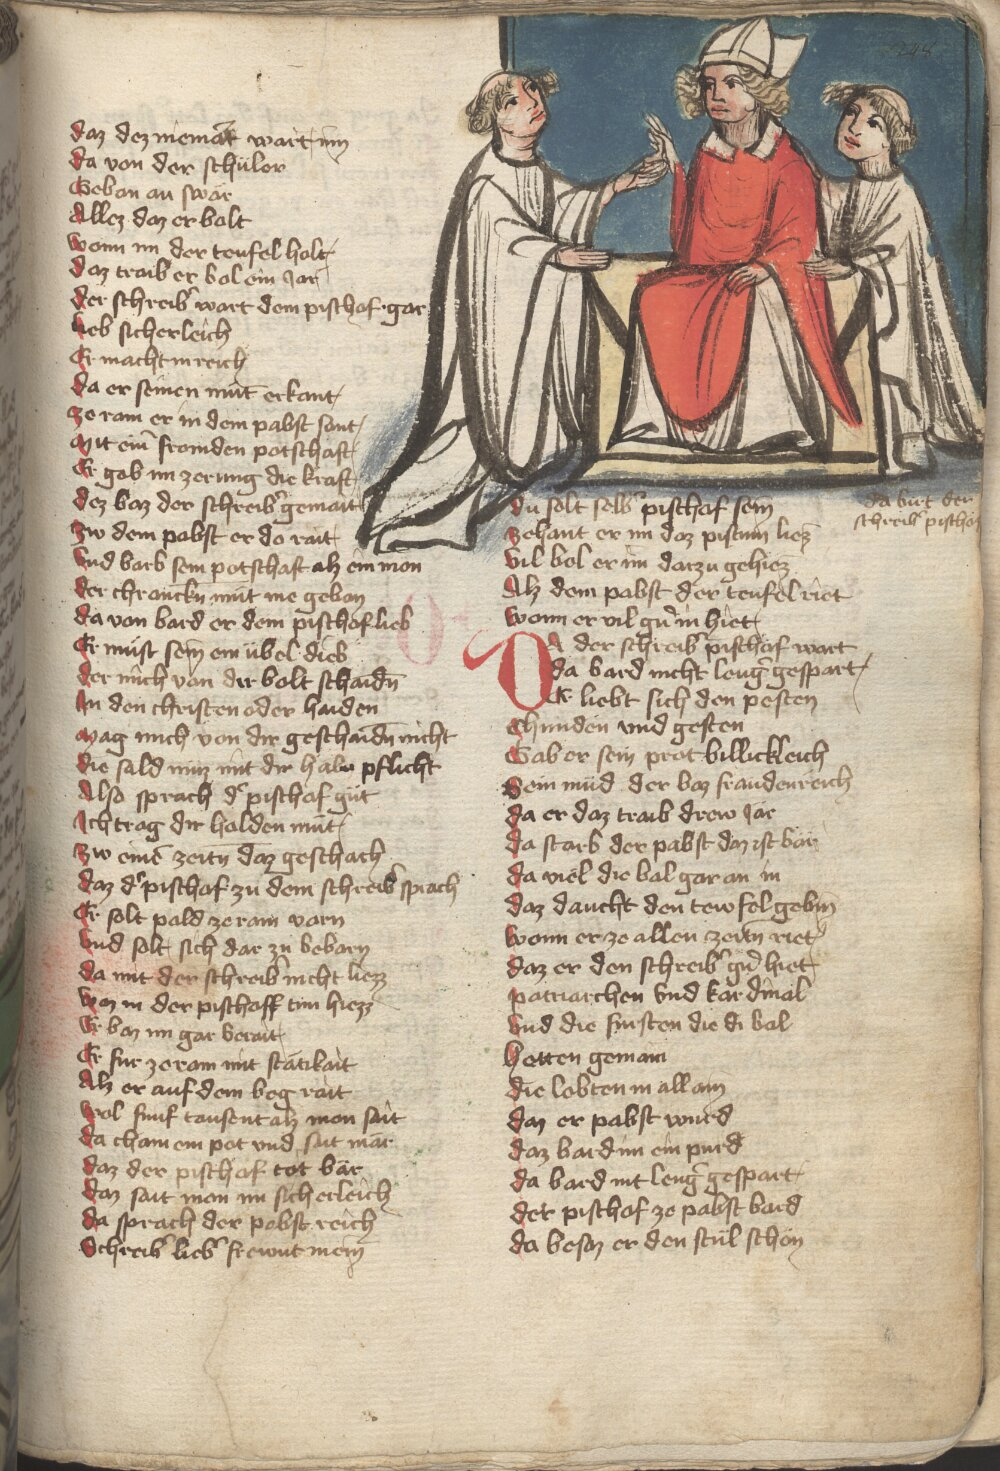 248
daz dez niemāt wart inn
da von der schüler
Geban an swär
Allez daz er bolt
wann im der teufel holt
daz traib er bol ein Jar
der schreibʾ wart dem pischof gar
lieb sicherleich
Er macht in reich
da er seinen müt erkant
ze ram er in dem pabst sant
Mit eim̄ fromden potschaft
Er gab im zerung die kraft
dez baz der schreibʾ gemait
zw dem pabst er do rait
Vnd barb sein potschaft alz ein man
der chranckn̄ müt me geban
da von bard er dem pischof lieb
Er müst sein ein übel dieb
der mich von dir bolt schaidn̄
In den christen oder haiden
Mag mich von dir geschaidn̄ nicht
die säld müz mit dir habn pflicht
Also sprach dʾ pischof güt
Ich trag dir holden müt
Zw einē zeitn̄ daz geschach
daz dʾ pischof zu dem schreibʾ sprach
Er solt pald ze ram varn
Vnd solt sich dar zu bebarn
da mit der schreibʾ nicht liezz
waz in der pischoff tün hiezz
Er baz im gar berait
Er fur ze ram mit stätikait
Alz er auf dem beg rait
wol fünf tausent alz man sait
da cham ein pot vnd sait mär
daz der pischof tot bär
daz sait man im sicherleich
da sprach der pabst reich
Schreibʾ liebʾ frewnt mein
da birt der
schreibʾ pischof
du solt selbʾ pischof sein
zehant er im daz pistum liez
vil bol er im darzu gehiez
Alz dem pabst der teufel riet
wann er vil gʾn in hiet
DA der schreibʾ pischof wart
da bard nicht lengʾ gespart
Er liebt sich den pesten
chunden vnd gesten
Gab er sein prot billickleich
Sein müd der baz fraudenreich
da er daz traib drew Jar
da starb der pabst daz ist bär
da viel die bal gar an in
daz daucht den tewfel gebin
wann er ze allen zeitn̄ riet
daz er den schreibʾ gʾn hiet
patriarchen vnd kardinal
Vnd die fürsten die di bal
hetten gemain
die lobten in all ain
daz er pabst wurd
daz bard im ein purd
da bard nit lengʾ gespart
der pischof ze pabst bard
da besaz er den stül schon